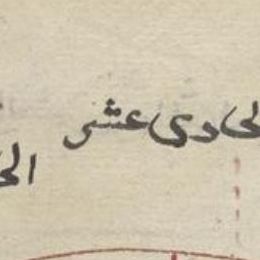 لحادى عشر
الح